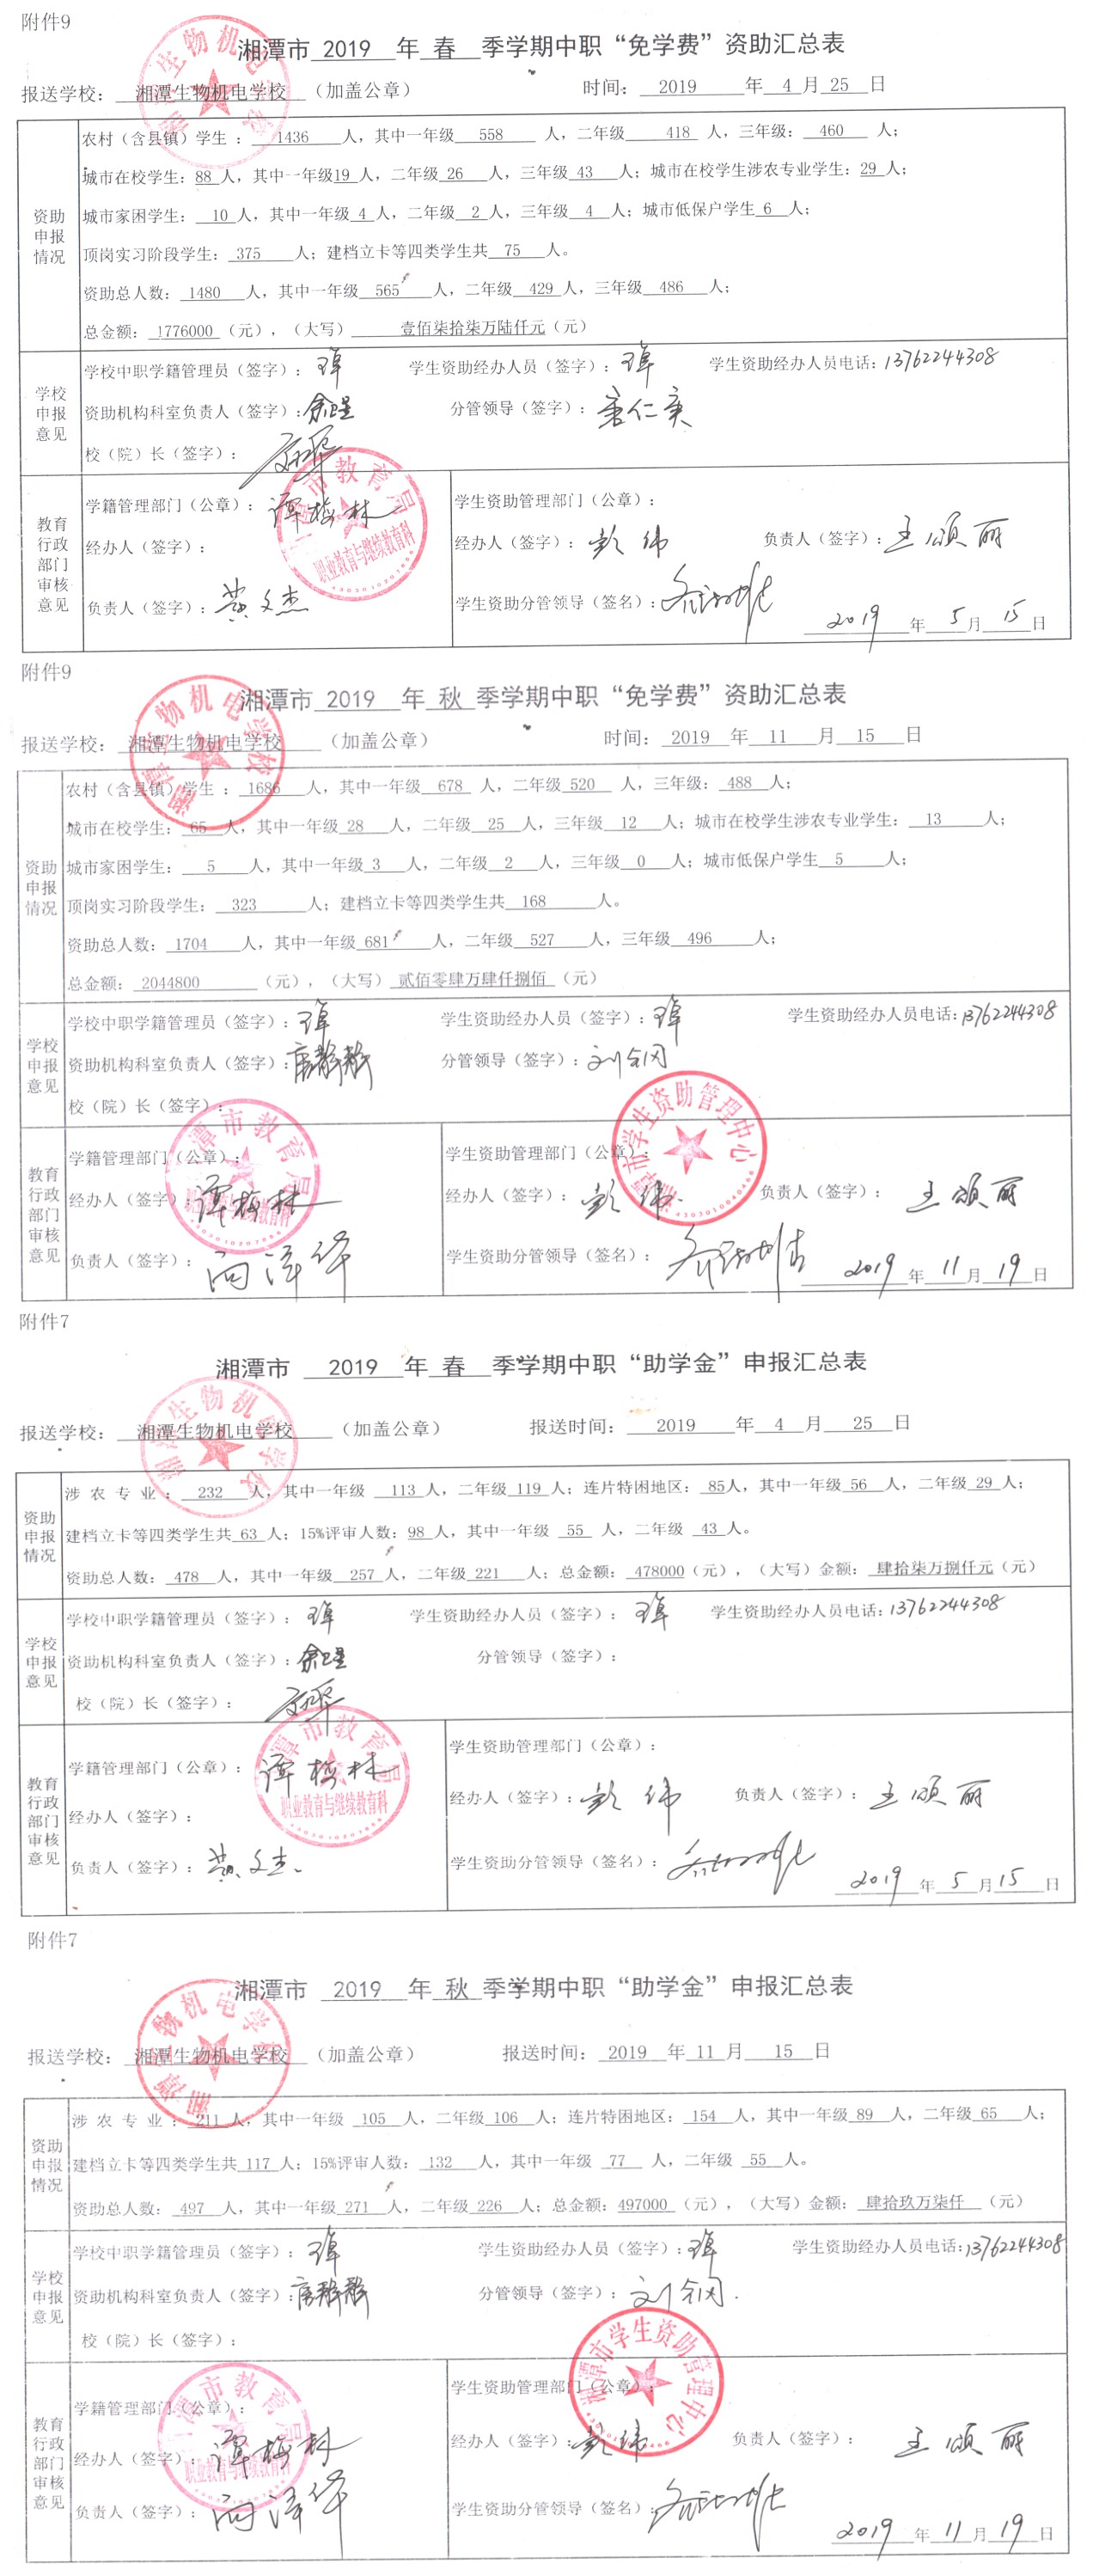 附件9
湘潭市 2019 年 春 季学期中职“免学费”资助汇总表
报送学校： 湘潭生物机电学校 （加盖公章） 时间： 2019 年 4 月 25 日
资助申报情况
农村（含县镇）学生 ： 1436 人，其中一年级 558 人，二年级 418 人，三年级： 460 人；
城市在校学生：88 人，其中一年级19 人，二年级 26 人，三年级 43 人；城市在校学生涉农专业学生：29 人；
城市家困学生： 10 人，其中一年级 4 人，二年级 2 人，三年级 4 人；城市低保户学生 6 人；
顶岗实习阶段学生： 375 人；建档立卡等四类学生共 75 人。
资助总人数： 1480 人，其中一年级 565 人，二年级 429 人，三年级 486 人；
总金额： 1776000 （元），（大写） 壹佰柒拾柒万陆仟元（元）
学校申报意见
学校中职学籍管理员（签字）： 学生资助经办人员（签字）： 学生资助经办人员电话：13762244308
资助机构科室负责人（签字）： 分管领导（签字）：
校（院）长（签字）：
教育行政部门审核意见
学籍管理部门（公章）： 谭梅林 学生资助管理部门（公章）：
经办人（签字）： 经办人（签字）： 彭伟 负责人（签字）：王颂丽
负责人（签字）：黄文杰 学生资助分管领导（签名）：
2019 年 5 月 15 日
附件9
湘潭市 2019 年 秋 季学期中职“免学费”资助汇总表
报送学校： 湘潭生物机电学校 （加盖公章） 时间： 2019 年 11 月 15 日
资助申报情况
农村（含县镇）学生 ： 1686 人，其中一年级 678 人，二年级 520 人，三年级： 488 人；
城市在校学生： 65 人，其中一年级 28 人，二年级 25 人，三年级 12 人；城市在校学生涉农专业学生： 13 人；
城市家困学生： 5 人，其中一年级 3 人，二年级 2 人，三年级 0 人；城市低保户学生 5 人；
顶岗实习阶段学生： 323 人；建档立卡等四类学生共 168 人。
资助总人数： 1704 人，其中一年级 681 人，二年级 527 人，三年级 496 人；
总金额： 2044800 （元），（大写） 贰佰零肆万肆仟捌佰 （元）
学校申报意见
学校中职学籍管理员（签字）： 学生资助经办人员（签字）： 学生资助经办人员电话：13762244308
资助机构科室负责人（签字）： 分管领导（签字）：
校（院）长（签字）：
教育行政部门审核意见
学籍管理部门（公章）： 学生资助管理部门（公章）：
经办人（签字）：谭梅林 经办人（签字）： 彭伟 负责人（签字）： 王颂丽
负责人（签字）： 向泽华 学生资助分管领导（签名）：
2019 年 11 月 19 日
附件7
湘潭市 2019 年 春 季学期中职“助学金”申报汇总表
报送学校： 湘潭生物机电学校 （加盖公章） 报送时间： 2019 年 4 月 25 日
资助申报情况
涉 农 专 业 ： 232 人，其中一年级 113 人，二年级 119 人；连片特困地区： 85人，其中一年级 56 人，二年级 29 人；
建档立卡等四类学生共 63 人；15%评审人数：98 人，其中一年级 55 人，二年级 43 人。
资助总人数： 478 人，其中一年级 257 人，二年级 221 人；总金额： 478000（元），（大写）金额： 肆拾柒万捌仟元（元）
学校申报意见
学校中职学籍管理员（签字）： 学生资助经办人员（签字）： 学生资助经办人员电话：13762244308
资助机构科室负责人（签字）： 分管领导（签字）：
校（院）长（签字）：
教育行政部门审核意见
学籍管理部门（公章）： 谭梅林 学生资助管理部门（公章）：
经办人（签字）： 经办人（签字）： 彭伟 负责人（签字）： 王颂丽
负责人（签字）： 黄文杰 学生资助分管领导（签名）：
2019 年 5 月 15 日
附件7
湘潭市 2019 年 秋 季学期中职“助学金”申报汇总表
报送学校： 湘潭生物机电学校 （加盖公章） 报送时间： 2019 年 11 月 15 日
资助申报情况
涉 农 专 业 ： 211 人，其中一年级 105 人，二年级 106 人；连片特困地区： 154 人，其中一年级 89 人，二年级 65 人；
建档立卡等四类学生共 117 人；15%评审人数： 132 人，其中一年级 77 人，二年级 55 人。
资助总人数： 497 人，其中一年级 271 人，二年级 226 人；总金额：497000 （元），（大写）金额： 肆拾玖万柒仟 （元）
学校申报意见
学校中职学籍管理员（签字）： 学生资助经办人员（签字）： 学生资助经办人员电话：13762244308
资助机构科室负责人（签字）： 分管领导（签字）：
校（院）长（签字）：
教育行政部门审核意见
学籍管理部门（公章）： 学生资助管理部门（公章）：
经办人（签字）：谭梅林 经办人（签字）：彭伟 负责人（签字）： 王颂丽
负责人（签字）： 向泽华 学生资助分管领导（签名）：
2019 年 11 月 19 日